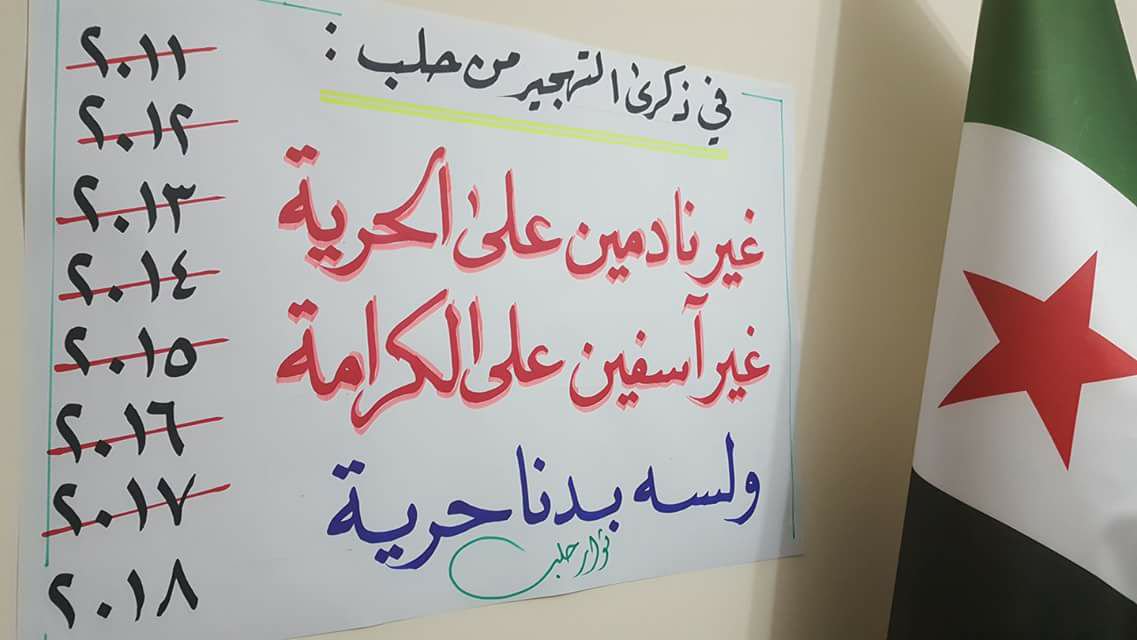 في ذكرى التهجير من حلب :
غير نادمين على الحرية
غير آسفين على الكرامة
ولسه بدنا حرية
ثوار حلب
٢٠١١
٢٠١٢
٢٠١٣
٢٠١٤
٢٠١٥
٢٠١٦
٢٠١٧
٢٠١٨